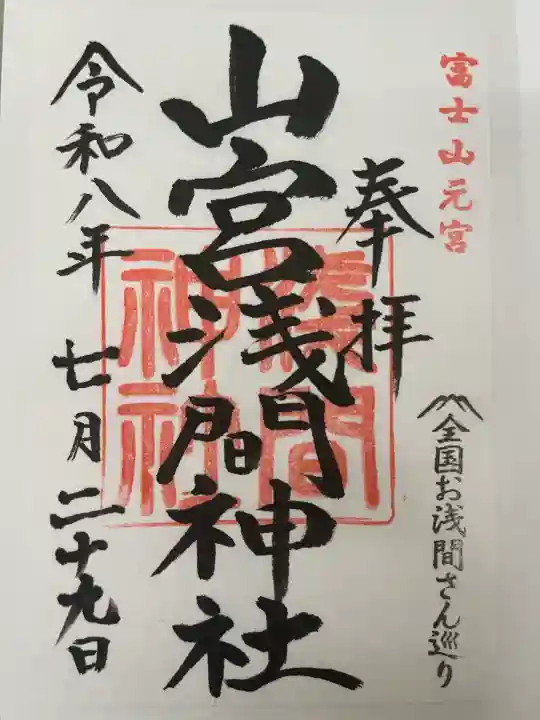 富士山元宮
全国お浅間さん巡り
奉拝
山宮浅間神社
浅間
神社
令和八年 七月二十九日